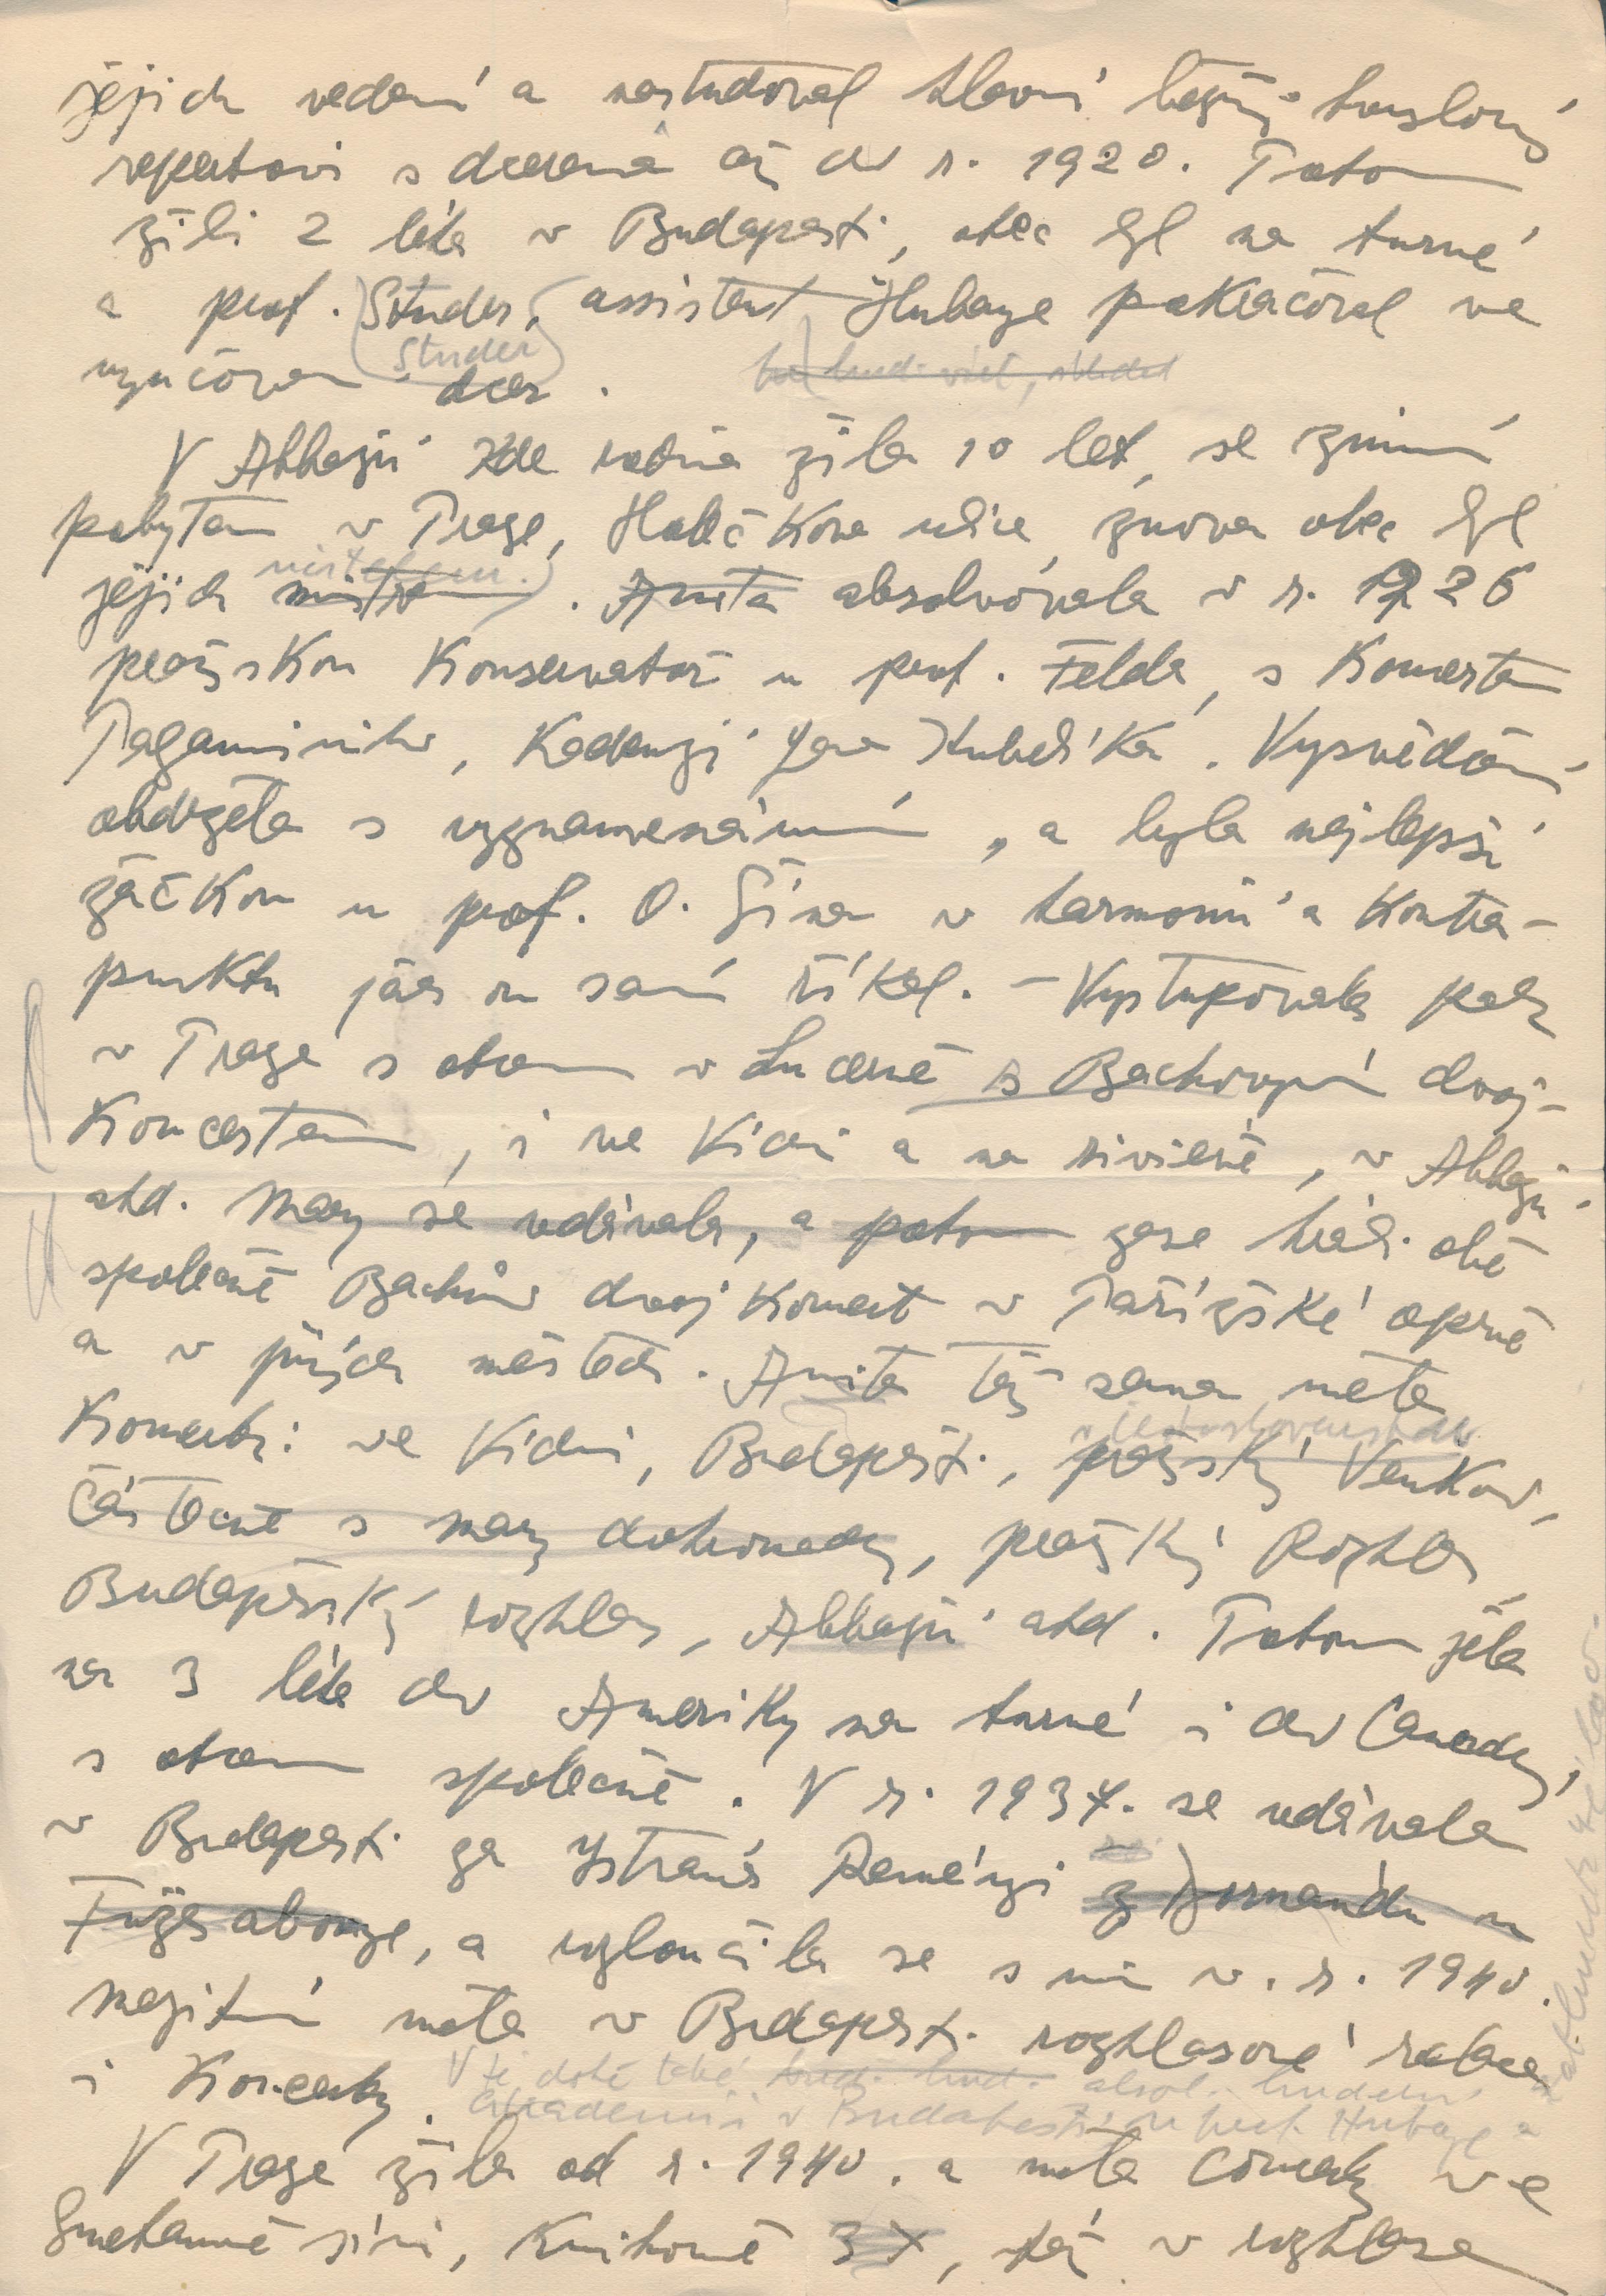 jejich vedení a nastudoval hlavní těžký houslový
repertoir s dcerama až do r. 1920. Potom
žili 2 léta v Budapešti, otec byl na turné
a prof. Studer, assistent Hubaye pokračoval ve
(Studer)
vyučování dcer.
V Abbazii kde rodina žila 10 let, se zimní
pobytem v Praze, Havlíčkova ulice, znova otec byl
jejich mistrem. Anita absolvóvala v r. 1926
pražskou Konservatoř u prof. Felda, s Koncertem
Paganiniho, Kadenzí Jana Kubelíka. Vysvědčení
obdržela s vyznamenáním, a byla nejlepší
žáčkou u prof. O. Šína v harmonii a Kontra-
punktu jak on sám říkal. – Vystupovala pak
v Praze s otcem v Lucerně s Bachovým dvoj-
Koncertem, i ve Vídni a na rivieře, v Abbazii
atd. Mary se vdávala, a potom zase hráli obě
společně Bachův dvojKoncert v Pařížské opeře
a v jiných městech. Anita též sama měla
v Československu
Koncerty: ve Vídni, Budapešti, pražský Venkov,
částečně s Mary dohromady, pražský Rozhlas,
Budapešťský rozhlas, Abbazii atd. Potom jela
na 3 léta do Ameriky na turné i do Canady,
s otcem společně. V r. 1937. se vdávala
v Budapešti za Istvána Reményi z Dormándu u
Füzesabonye, a rozloučila se s ním v. r. 1940.
Mezitím měla v Budapešti rozhlasové
i Koncerty. V té době také absol. hudební
akademii v Budapešti u prof. Hubaye a
V Praze žila od r. 1940. a měla Concerty ve
Smetanově síni, Knihovně 3x, též v rozhlase